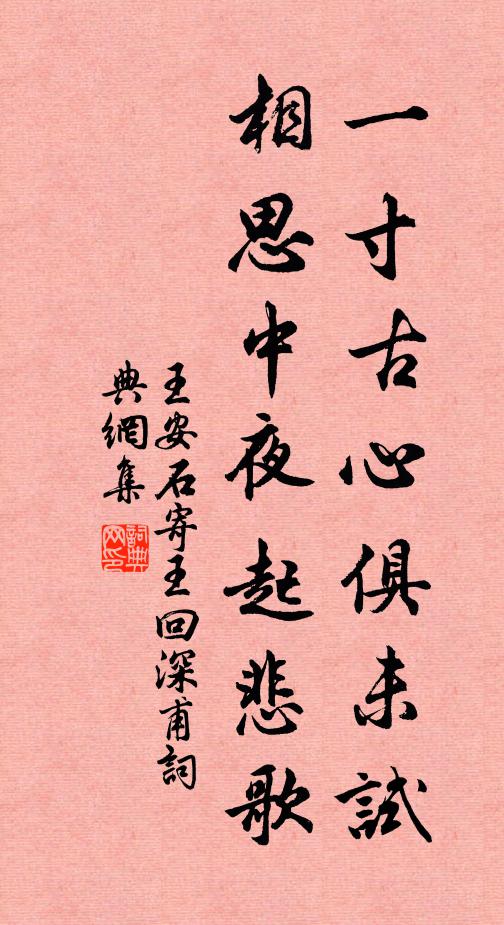 一寸古心俱未試
相思中夜起悲歌
王安石寄王回深甫詞
典網集
詞典网印